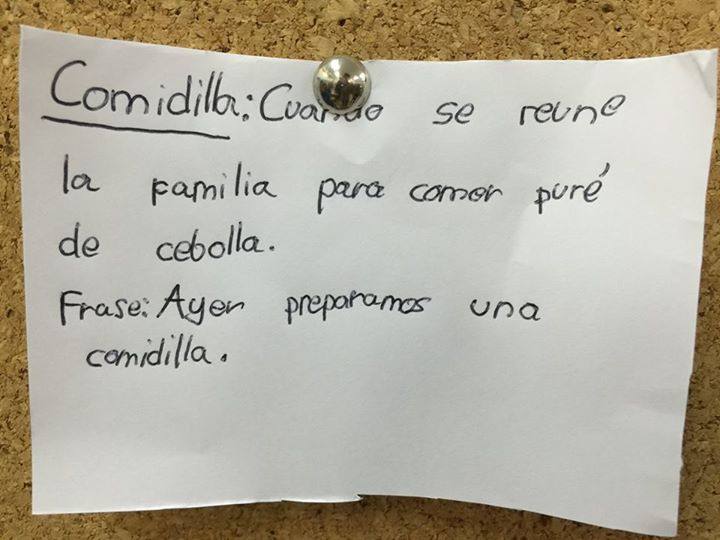 Comidilla: Cuando se reune
la familia para comer puré
de cebolla.
Frase: Ayer preparamos una
comidilla.